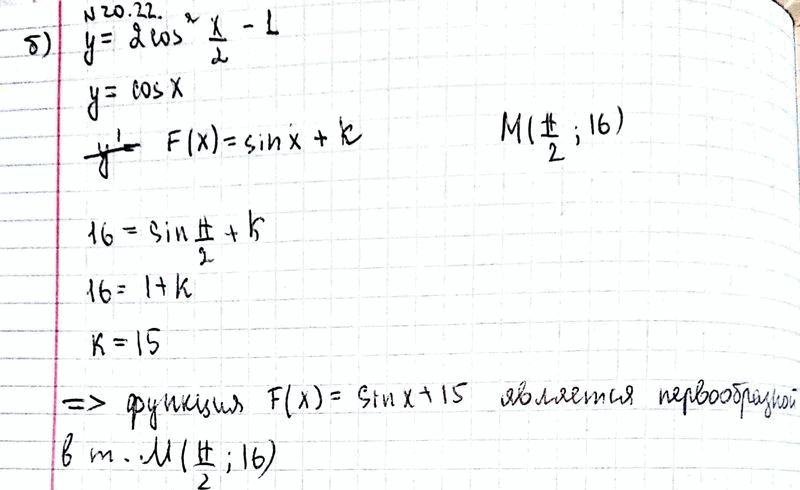 N 20.22.
б) y = 2cos² x/2 - 1
y = cos x
y' F(x) = sin x + k M(π/2 ; 16)
16 = sin π/2 + k
16 = 1 + k
k = 15
=> функция F(x) = sin x + 15 является первообразной
в т. M(π/2 ; 16)